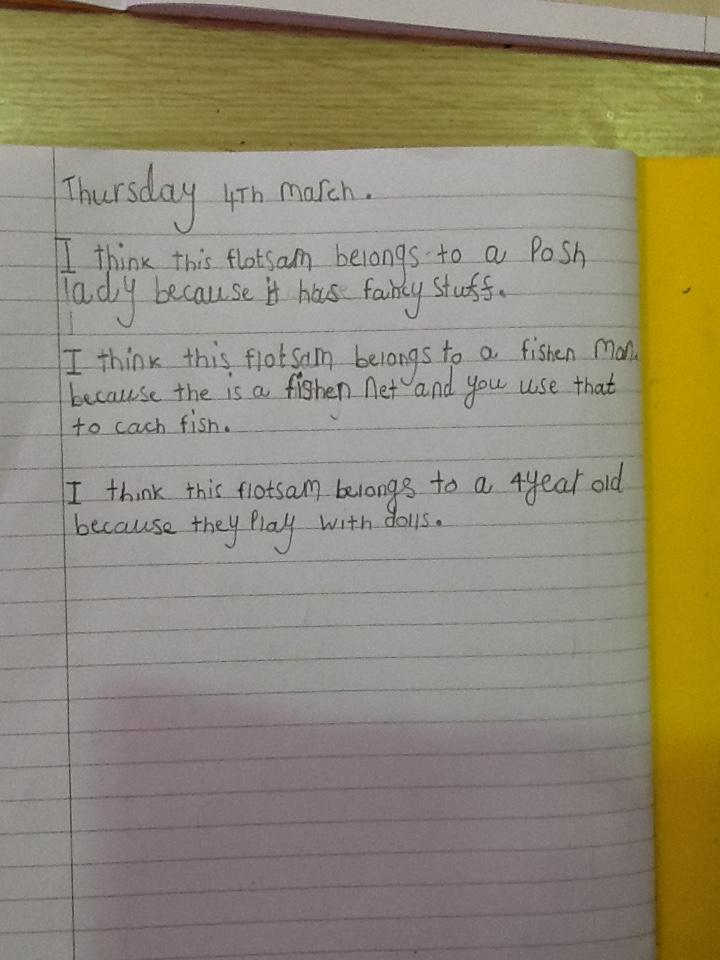 Thursday 4Th march.
I think this flotsam belongs to a Posh
lady because it has fancy stuff.
I think this flotsam belongs to a fishen man
because the is a fishen net and you use that
to cach fish.
I think this flotsam belongs to a 4year old
because they Play with dolls.